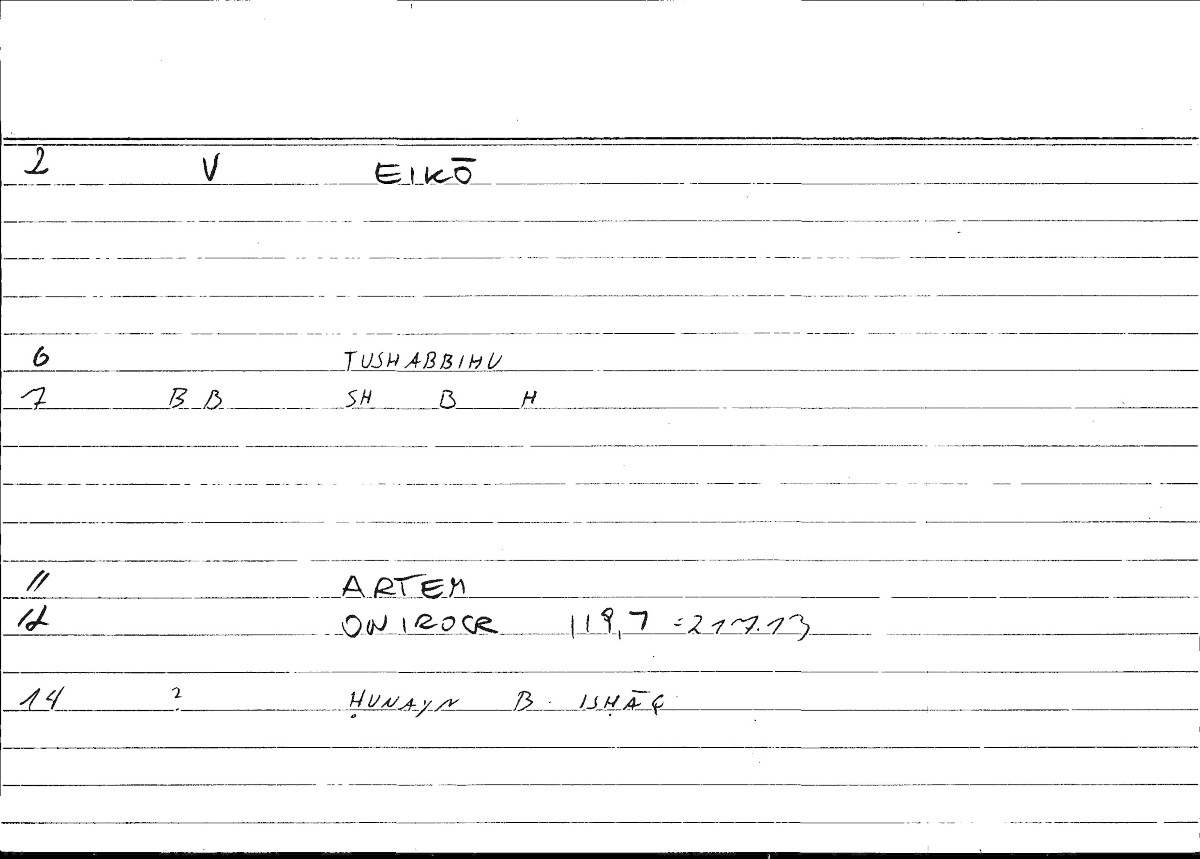 2 V EIKŌ
6 TUSHABBIHU
7 B B SH B H
11 ARTEM
12 ONIROCR 119,7 = 217.13
14 ? ḤUNAYN B. ISḤĀQ